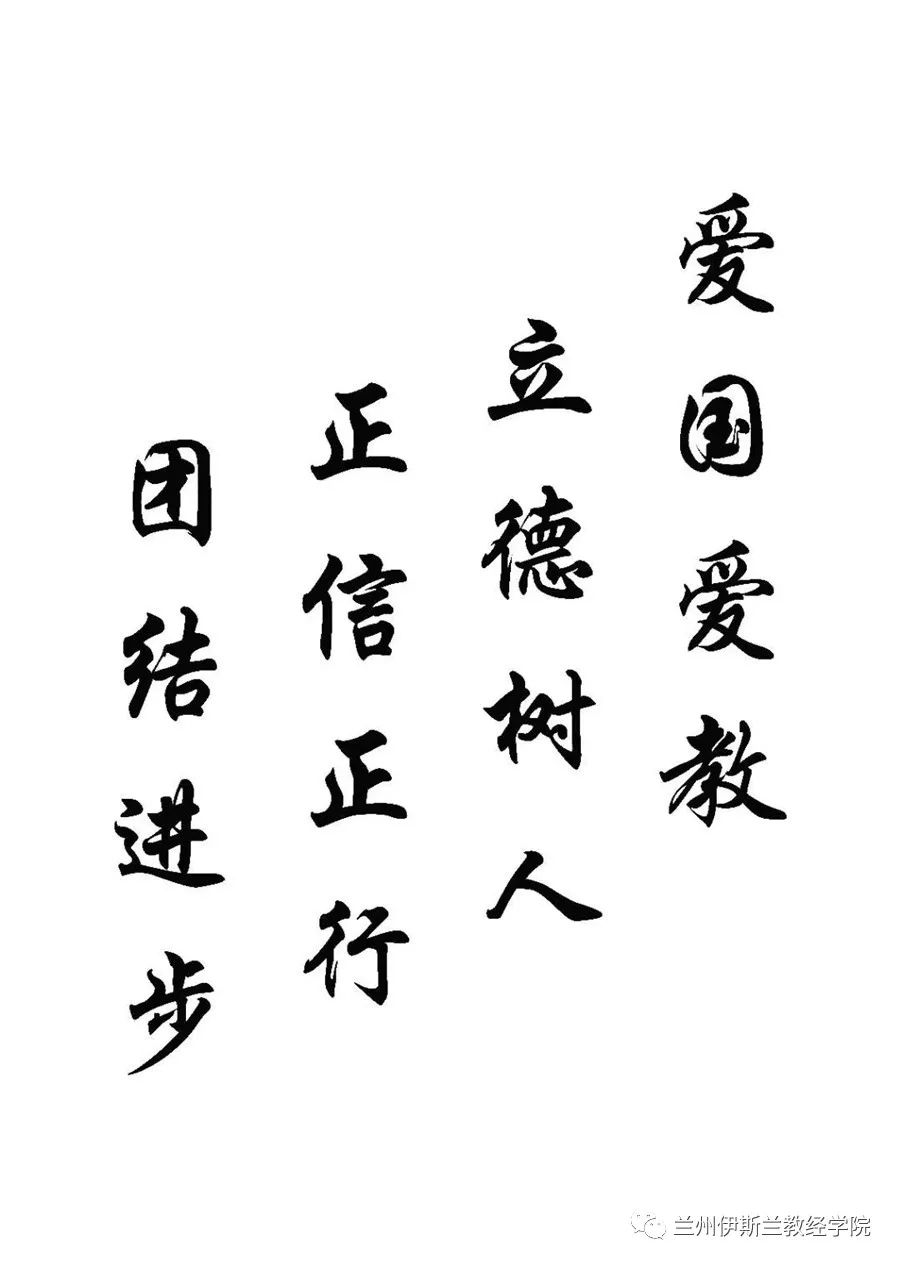 爱国爱教
立德树人
正信正行
团结进步
兰州伊斯兰教经学院